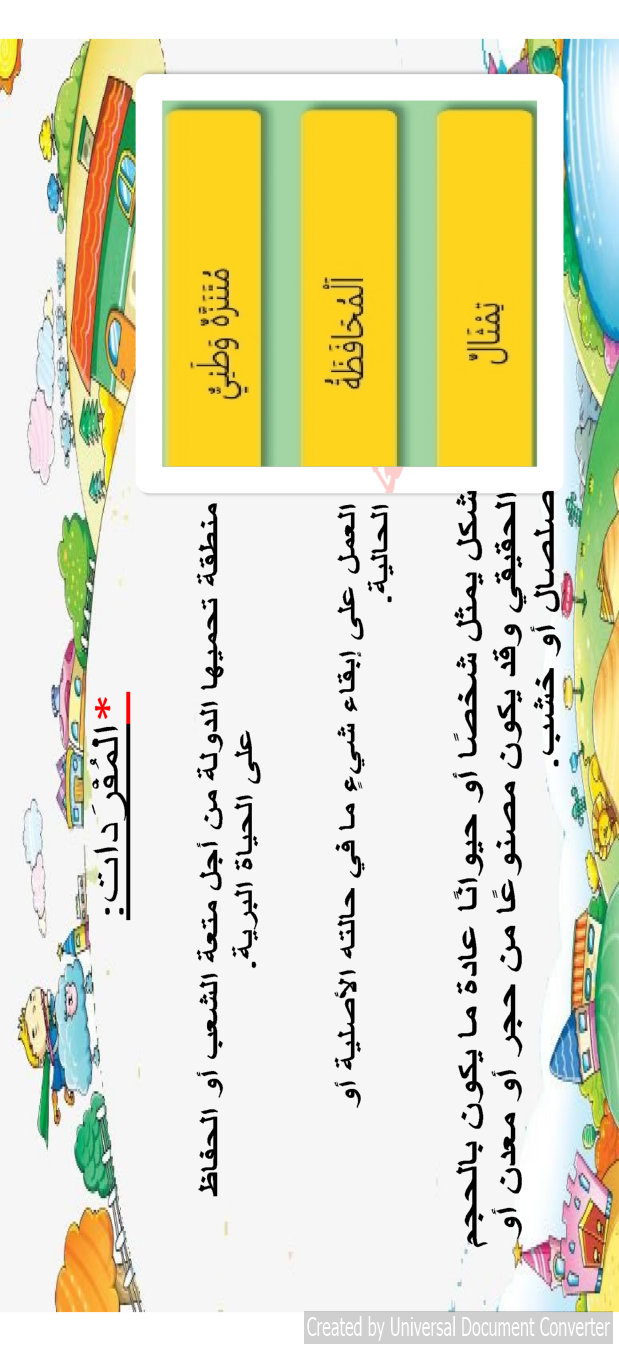 *المُفْرَدات:
مُتَنَزَّهٌ وَطَنِيٌّ
منطقة تحميها الدولة من أجل متعة الشعب أو الحفاظ
على الحياة البرية.
اَلْمُحَافَظَةُ
العمل على إبقاء شيءٍ ما في حالته الأصلية أو
الحالية.
تِمْثَالٌ
شكل يمثل شخصًا أو حيوانًا عادة ما يكون بالحجم
الحقيقي وقد يكون مصنوعًا من حجر أو معدن أو
صلصال أو خشب.
Created by Universal Document Converter